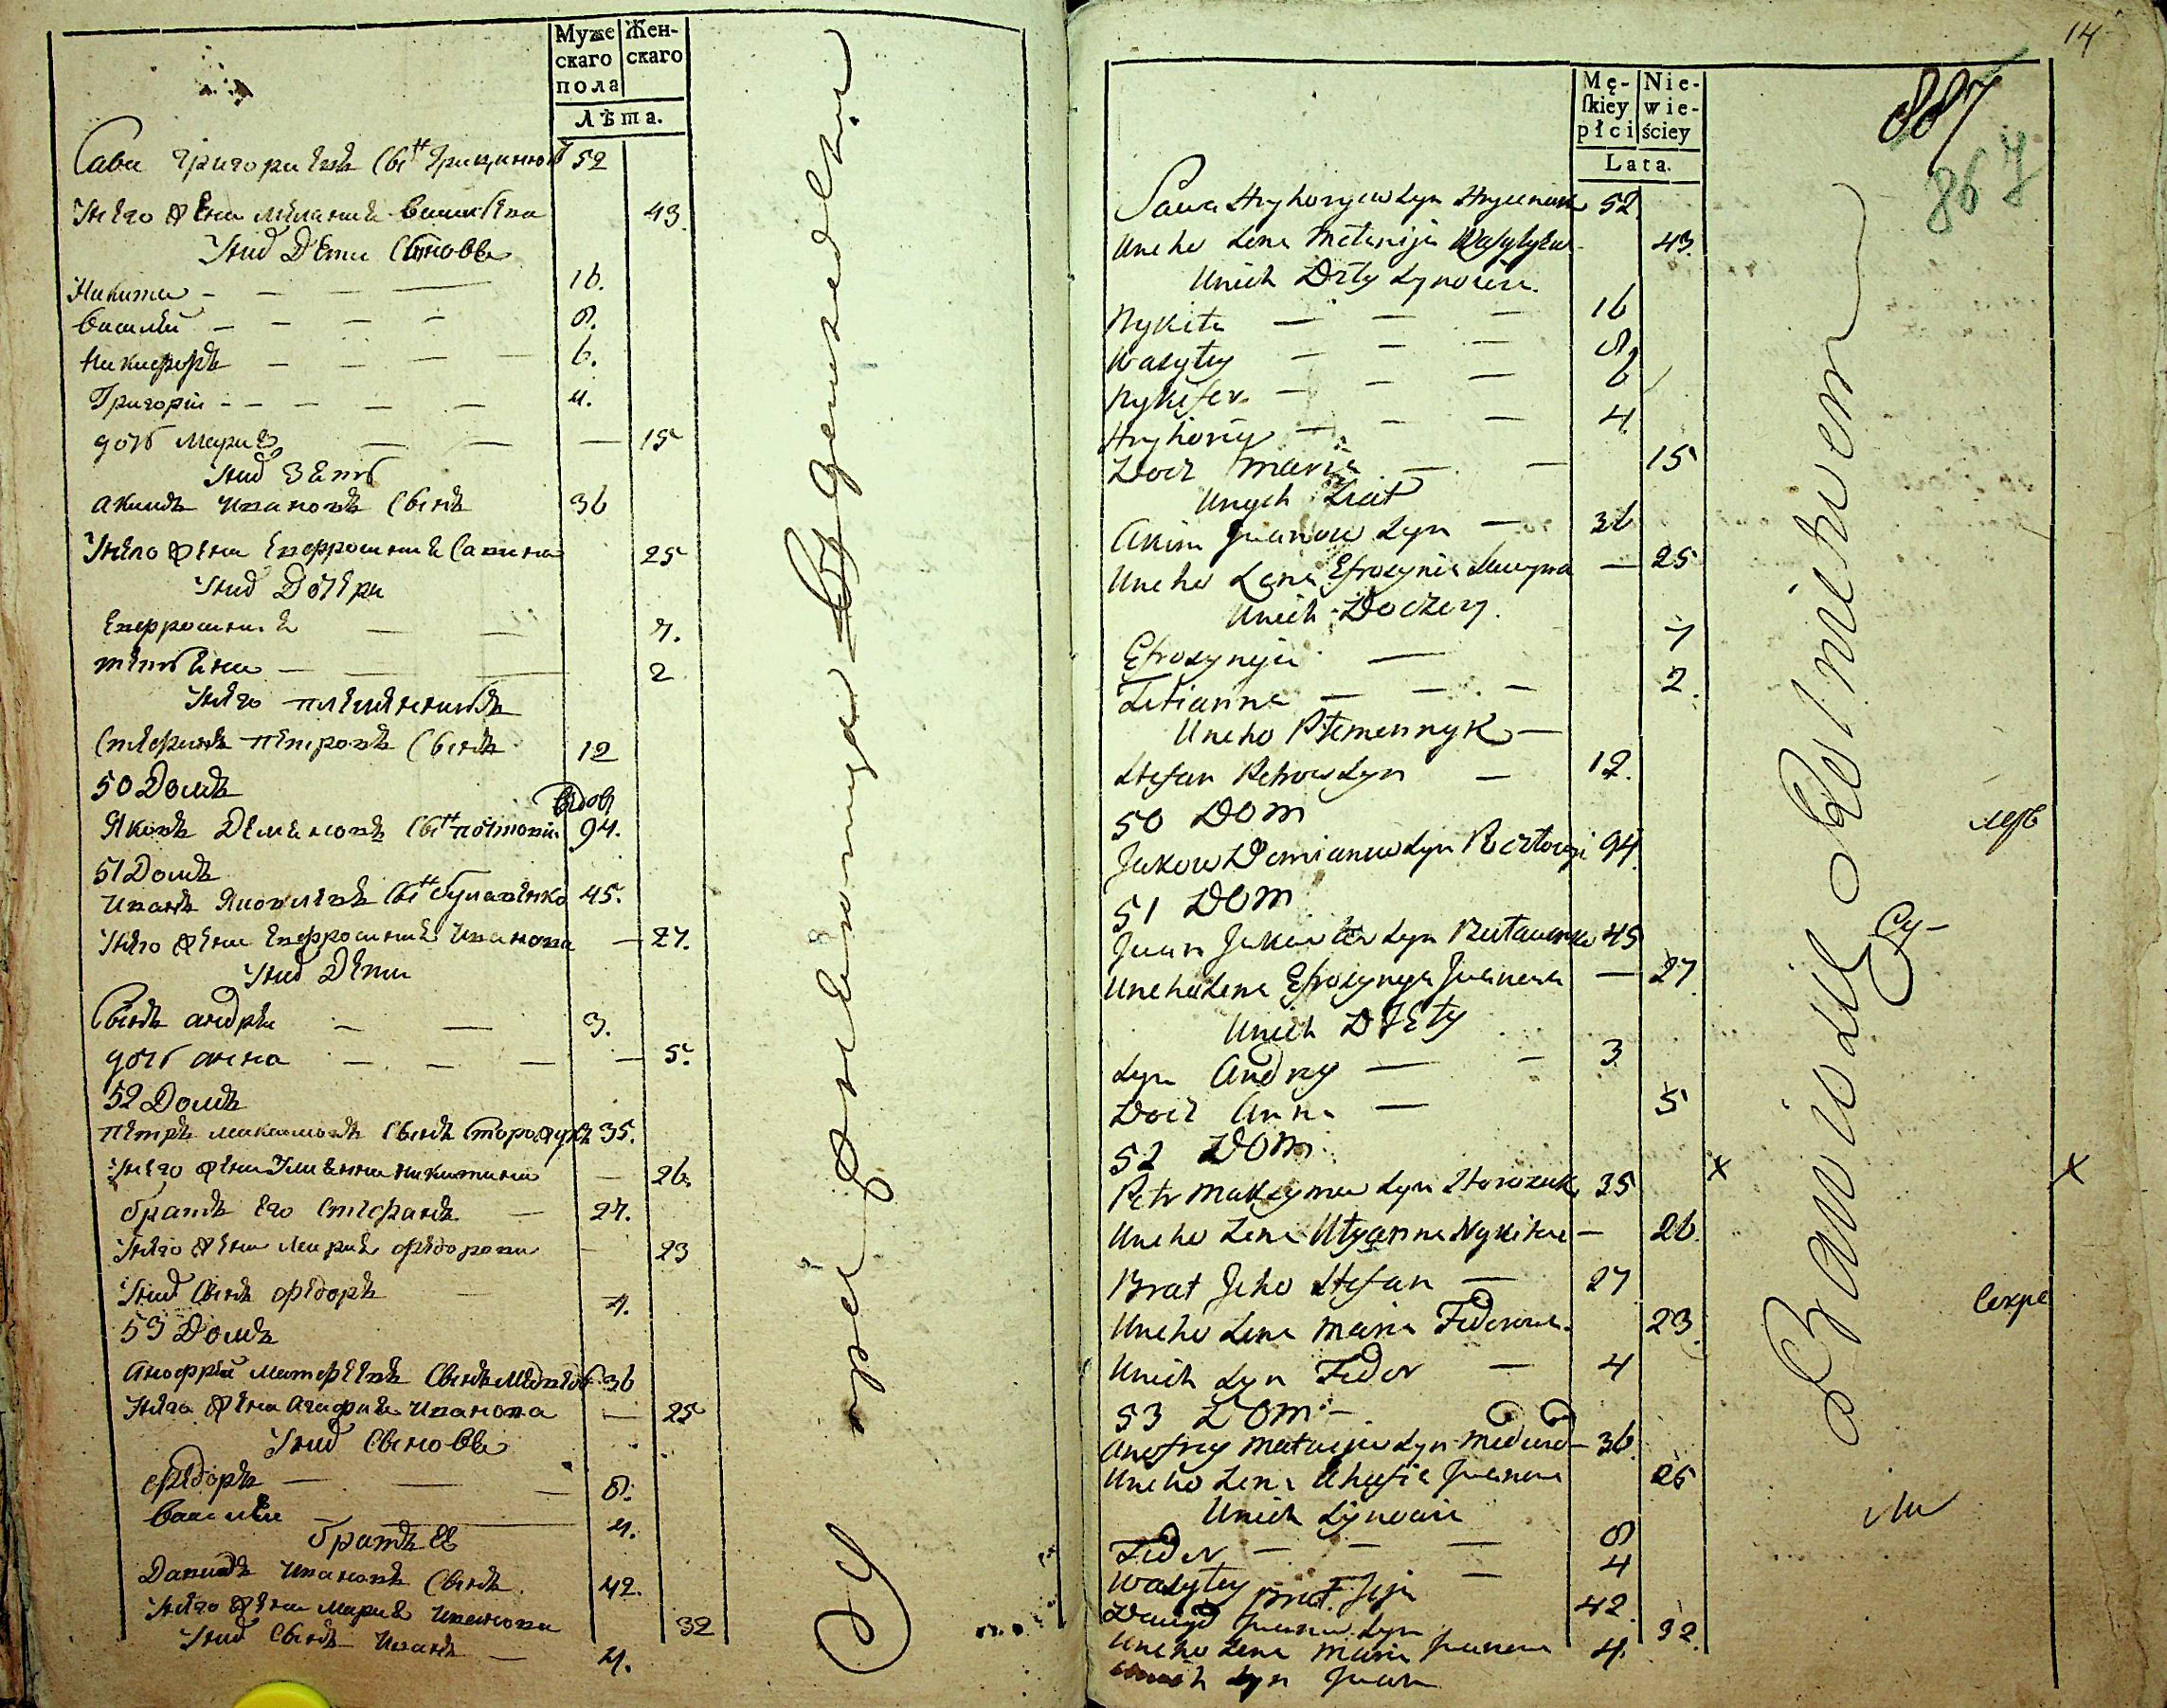 Муже
скаго
пола
Жен-
скаго
Лѣта.
Сава Григориевъ сынъ Грицинюкъ 52
Унего жена Мелания Василева 43
Униx Дети Сыновъ
Никита — — — — 16.
Василий — — — — 8.
Никифоръ — — — — 6.
Григорий — — — — 4.
дочь Мария — — — 15
Уних Зять
Акимъ Ивановъ Сынъ 36
Унего жена Ефросиния Савина 25
Уних Дочери
Ефросиния — — 7.
Тетьяна — — 2
Унего племенникъ
Стефанъ Петровъ Сынъ 12
50 Домъ
вдов
Яковъ Демяновъ сынъ 94.
51 Домъ
Иванъ Яковлевъ сынъ Булавенко 45.
Унего жена Ефросиния Иванова — 27.
Уних Дети
Сынъ андрей — — 3.
дочь анна — — — — 5.
52 Домъ
Петръ Максимовъ Сынъ Сторожукъ 35.
Унего жена Улиянна Никитина — 26.
братъ Его Стефанъ — 27.
Унего жена Мария Федорова — 23
Уних Сынъ Федоръ — 4.
53 Домъ
Анофрий Матфеевъ Сынъ Медведь 36
Унего жена Агафия Иванова — 25
Уних Сыновъ
Федоръ — — — 8.
Василий — 4.
братъ Ее
Давидъ Ивановъ Сынъ 42.
Унего жена Мария Иванова 32
Уних Сынъ Иванъ — 4.
14
887
867
Mę-
ſkiey
płci
Nie-
wie-
ściey
Lata.
Sawa Hryhoryew Syn Hrycenuk 52
Uneho Zena Melanija Wasylyewa 43.
Unich Dity Synowie.
Nykita — — — 16
Wasyley — — — 8
Nykifer — — — 6
Hryhorey — — — 4
Docz Maria — — 15
Unych Ziat
Akim Juanow Syn — 36
Uneho Zena Efrosynia Sawyna — 25
Unich Doczery.
Efrosynyia — 7
Tetianna — — — 2.
Uneho Plemennyk —
Stefan Petrow Syn — 12.
50 Dom
Jakow Demianow Syn 94
51 Dom
Juan Jakowlew Syn Bulawenko 45
Uneho Zena Efrosynya Juanowa — 27
Unich Diety
Syn Andrey — — 3
Docz Anna — 5
52 Dom
Petr Maksymow Syn Storozuk 35
Uneho Zena Ulyanna Nykitina — 26.
Brat Jeho Stefan — 27
Uneho Zena Maria Fedorowa. 23.
Unich Syn Fedor — 4
53 Dom —
Anofrey Matwejew Syn Medwed — 36
Uneho Zena Ahafia Juanowa 25
Unich Synowie
Fedor — — — 8
Wasyley — 4
Brat Jeja
Dawyd Juanow Syn 42.
Uneho Zena Maria Juanowa 32.
Unich Syn Juan 4.